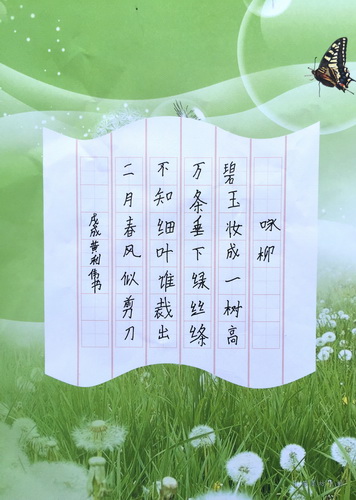 咏柳
碧玉妆成一树高
万条垂下绿丝绦
不知细叶谁裁出
二月春风似剪刀
戊戌黄利伟书